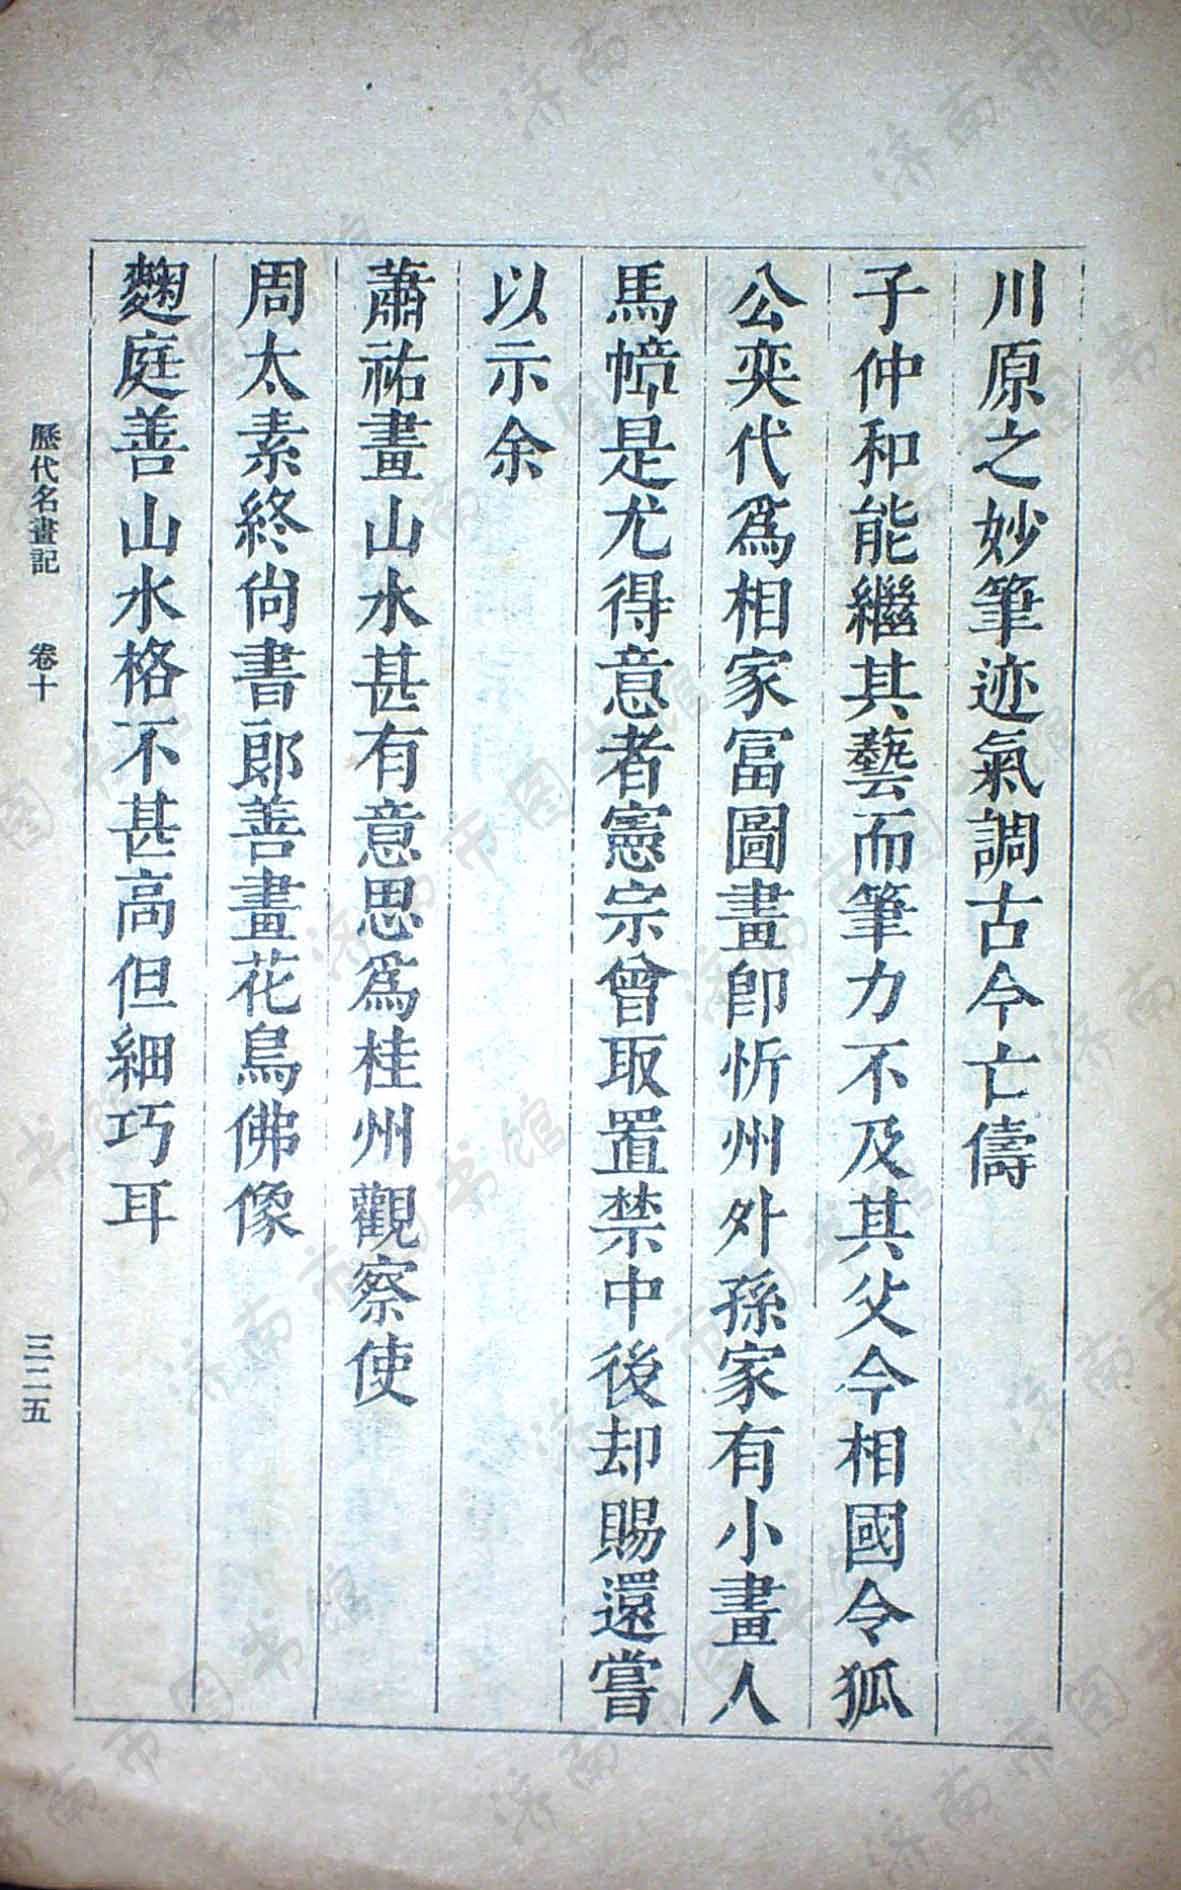 川原之妙筆迹氣調古今亡儔
子仲和能繼其藝而筆力不及其父今相國令狐
公奕代爲相家富圖畫卽忻州外孫家有小畫人
馬幛是尤得意者憲宗曾取置禁中後却賜還嘗
以示余
蕭祐畫山水甚有意思爲桂州觀察使
周太素終尙書郎善畫花鳥佛像
麴庭善山水格不甚高但細巧耳
歷代名畫記 卷十 三二五
济南市图书馆